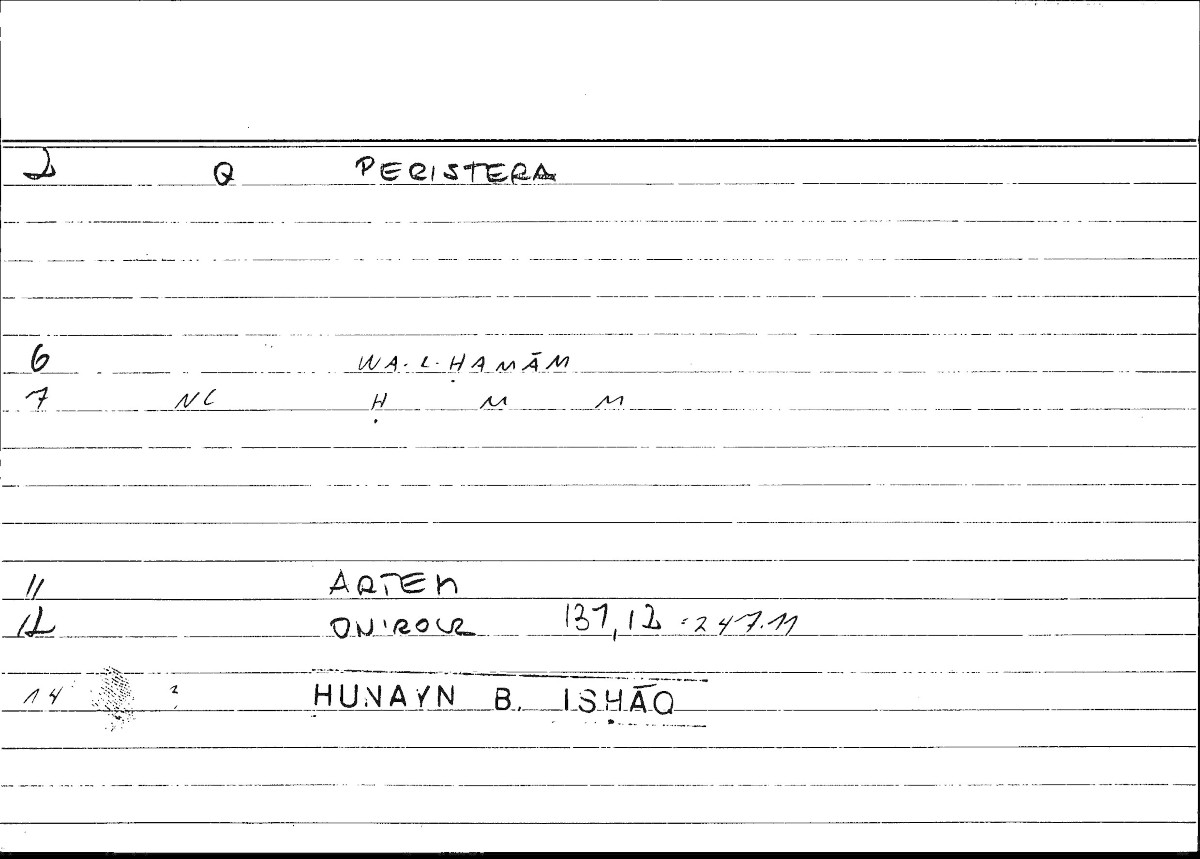 2 Q PERISTERA
6 WA-L-ḤAMĀM
7 NC Ḥ M M
11 ARTEM
12 ONIROCR 137,12 = 247.11
14 2 ḤUNAYN B. ISḤĀQ